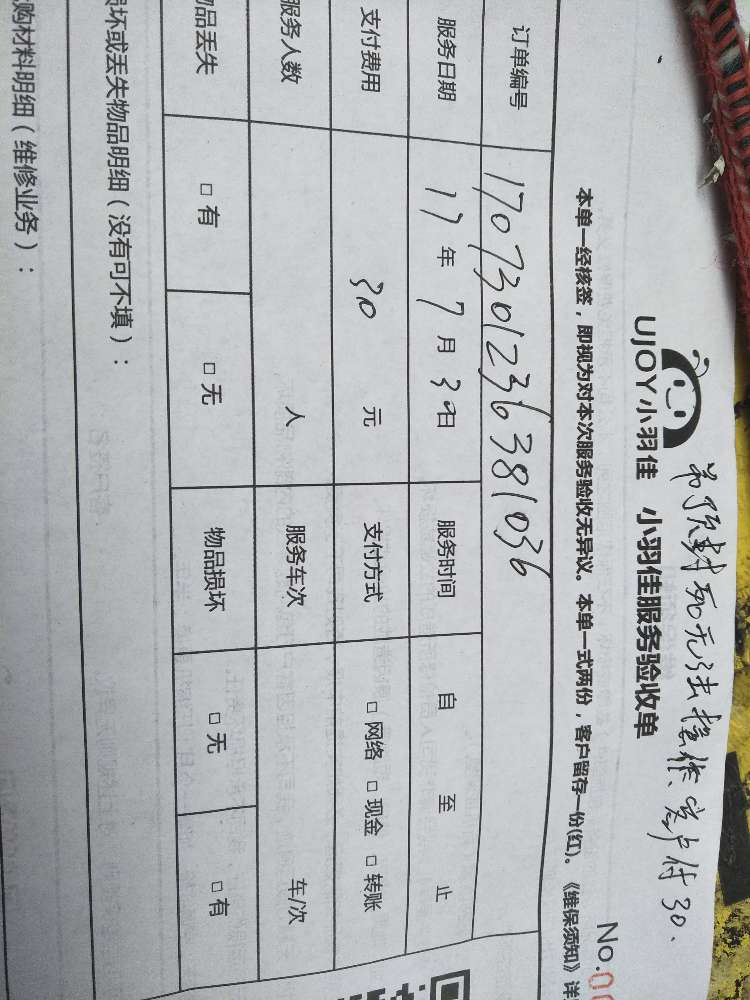 吊顶封死无法操作、客户付30、
UJOY小羽佳 小羽佳服务验收单
No.0
本单一经核签，即视为对本次服务验收无异议。本单一式两份，客户留存一份(红)。《维保须知》详
订单编号 1707301236381036
服务日期 17年7月30日 服务时间 自 至 止
支付费用 30 元 支付方式 □网络 □现金 □转账
服务人数 人 服务车次 车/次
物品丢失 □有 □无 物品损坏 □无 □有
损坏或丢失物品明细（没有可不填）：
购材料明细（维修业务）：